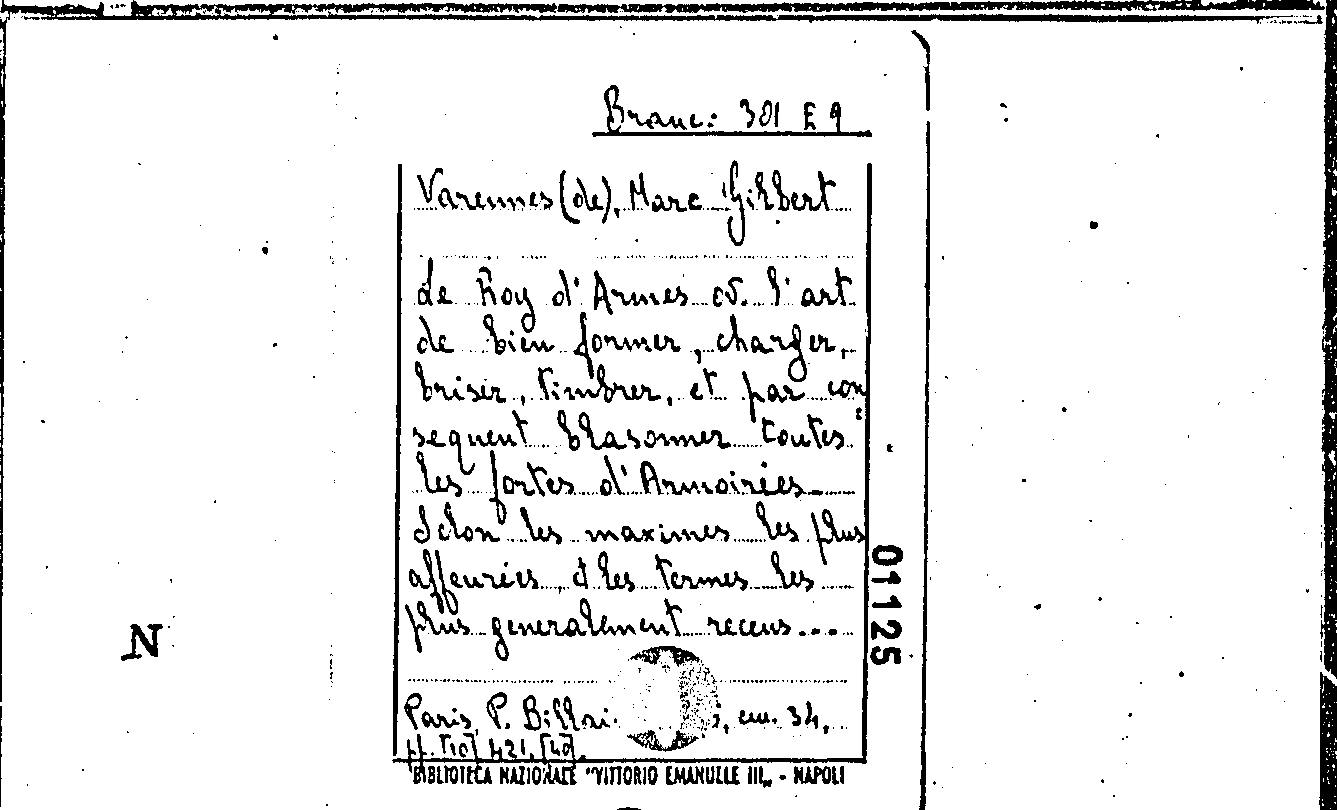 Branc: 301 E 9
Varennes (de), Marc Gilbert
Le Roy d'Armes ov. l'art
de bien former, charger,
briser, timbrer, et par con
sequent blasonner toutes
les fortes d'Armoiries
Selon les maximes les plus
affeurées, et les termes les
plus generalement receus...
Paris, P. Billai. , cm. 34,
pp. [10] 421, [40].
BIBLIOTECA NAZIONALE "VITTORIO EMANUELE III„ - NAPOLI
01125
N